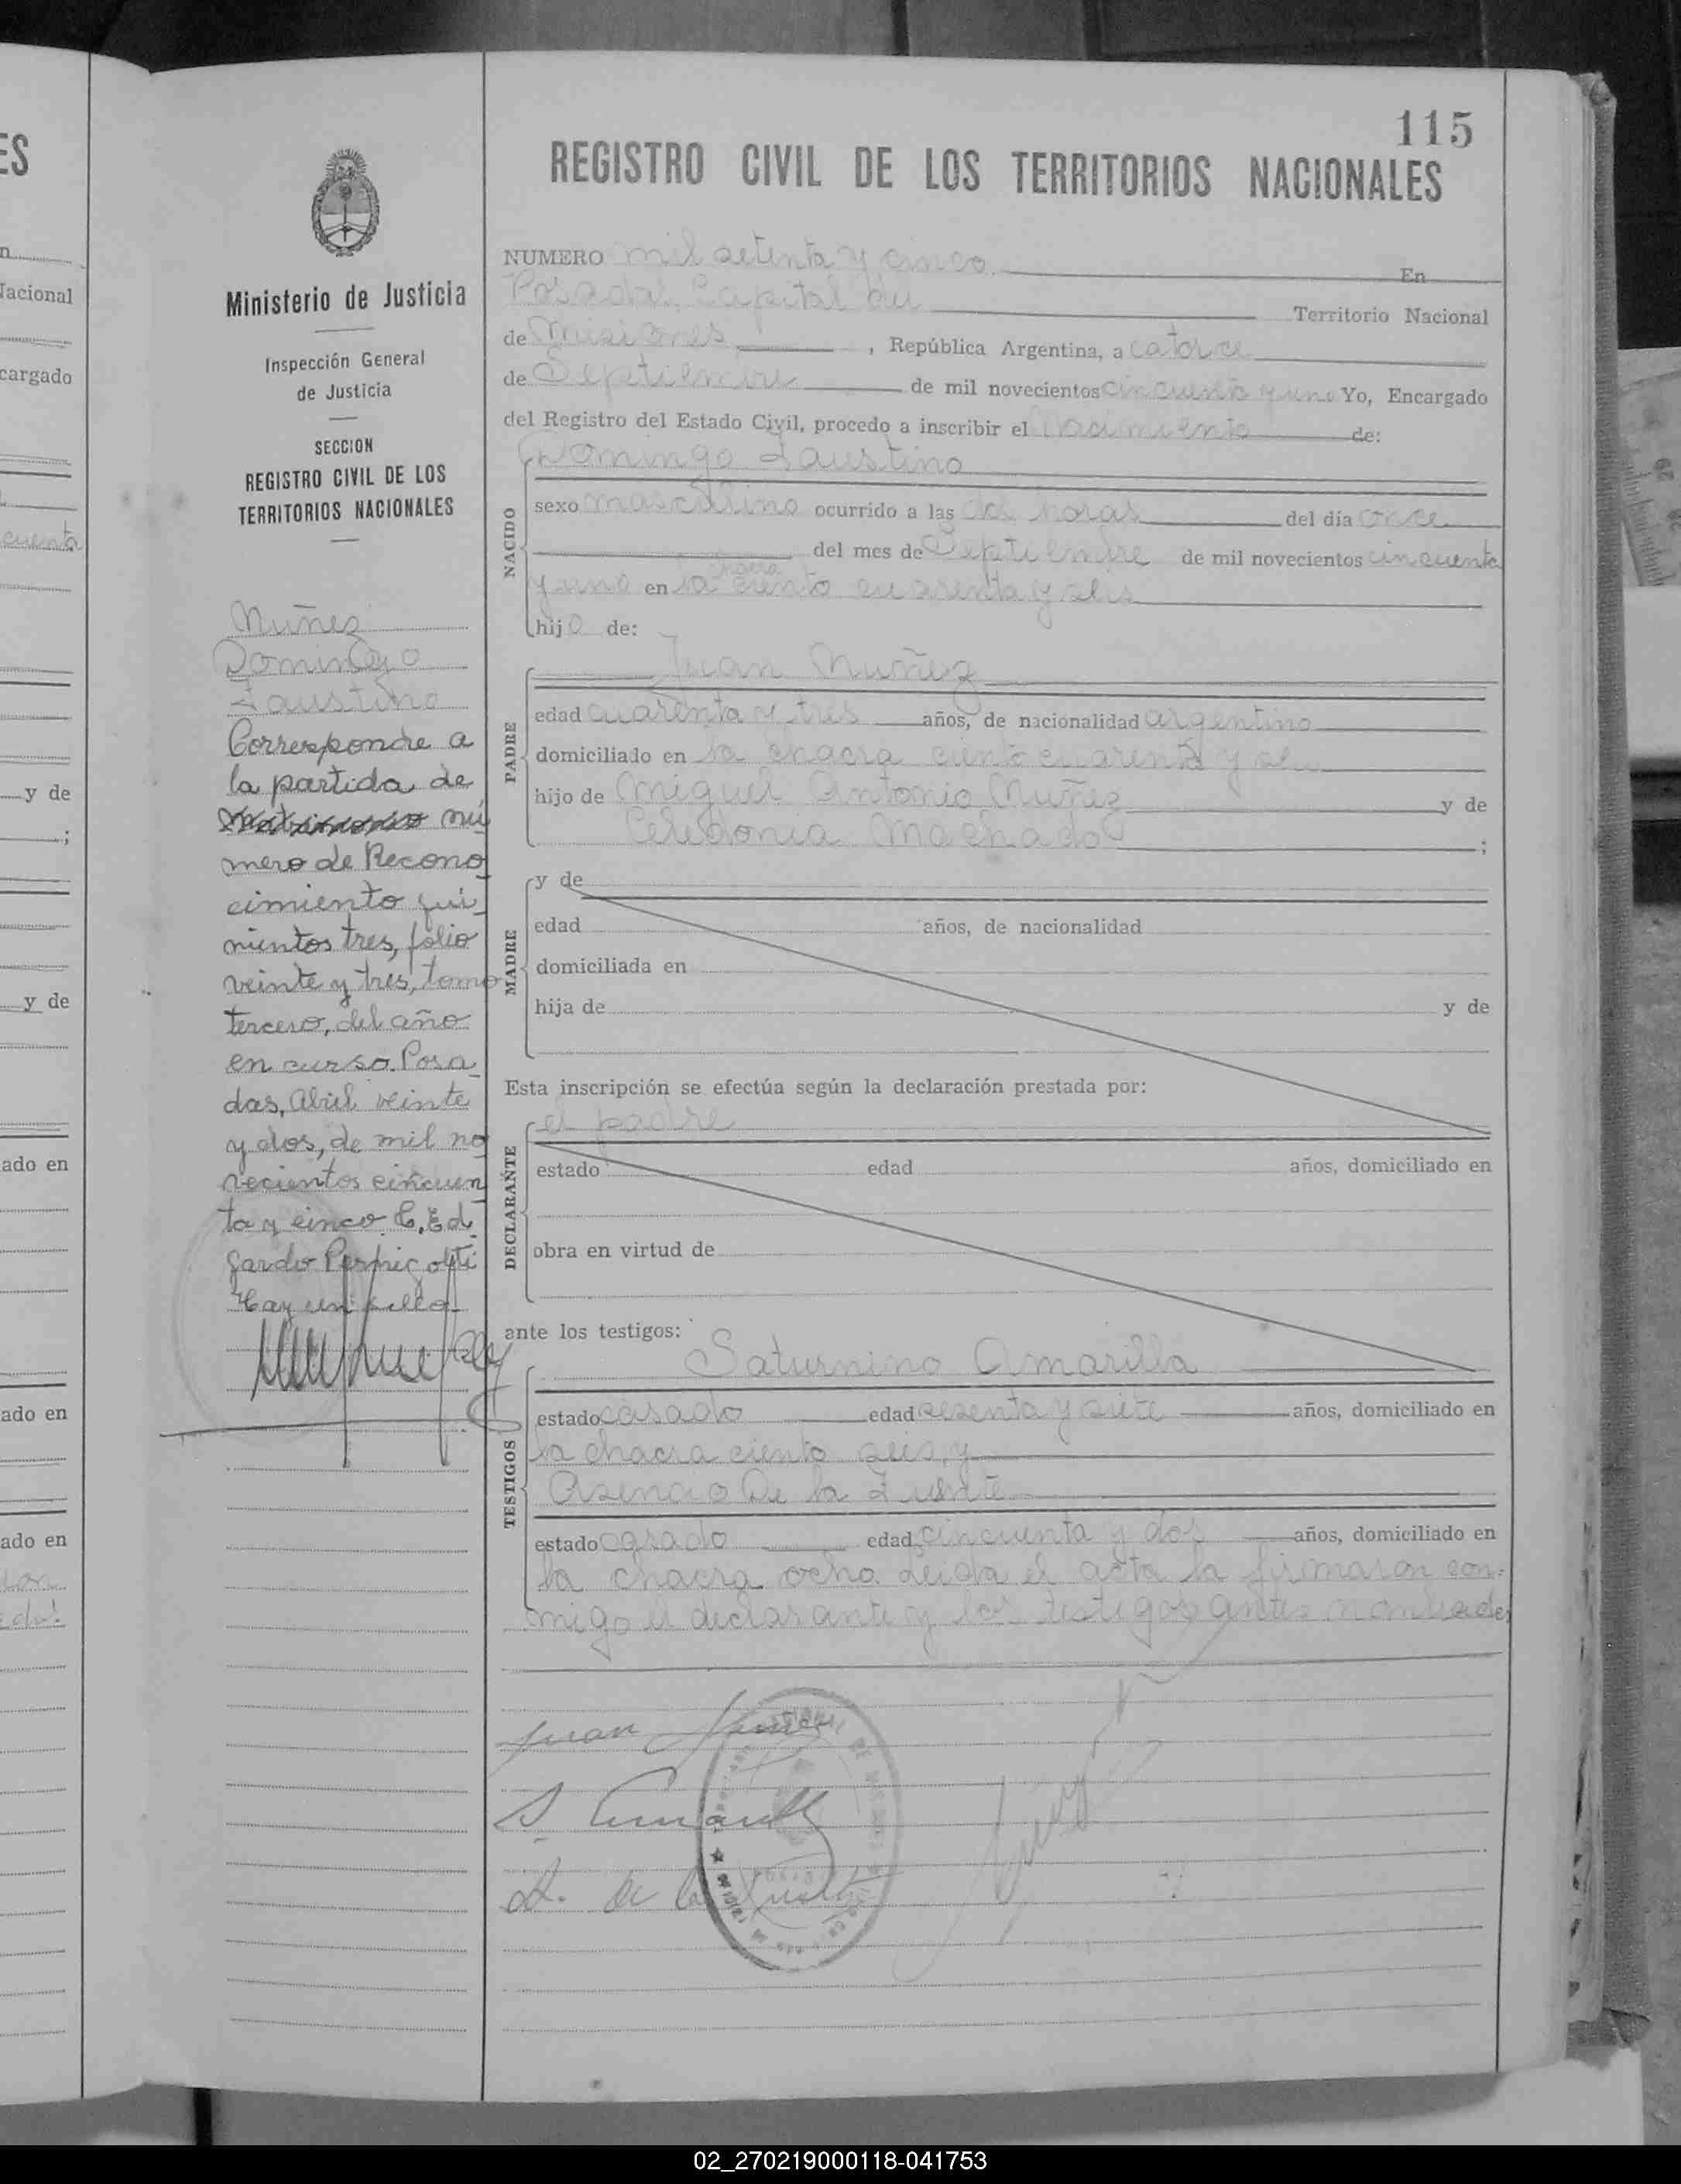 115
REGISTRO CIVIL DE LOS TERRITORIOS NACIONALES
Ministerio de Justicia
Inspección General
de Justicia
SECCION
REGISTRO CIVIL DE LOS
TERRITORIOS NACIONALES
Nuñez
Domingo
Faustino
Corresponde a
la partida de
matrimonio nú
mero de Recono
cimiento qui
nientos tres, folio
veinte y tres, tomo
tercero, del año
en curso. Posa
das, Abril veinte
y dos, de mil no
vecientos cincuen
ta y cinco C. Ed
gardo
Hay un sello
NUMERO mil setenta y cinco En
Posadas, Capital del Territorio Nacional
de Misiones, República Argentina, a catorce
de Septiembre de mil novecientos cincuenta y uno Yo, Encargado
del Registro del Estado Civil, procedo a inscribir el Nacimiento de:
Domingo Faustino
NACIDO
sexo masculino ocurrido a las dos horas del día once
del mes de Septiembre de mil novecientos cincuenta
chacra
y uno en la ciento cuarenta y seis
hijo de:
Juan Nuñez
PADRE
edad cuarenta y tres años, de nacionalidad argentino
domiciliado en la chacra ciento cuarenta y seis
hijo de Miguel Antonio Nuñez y de
Celedonia Machado ;
MADRE
y de
edad años, de nacionalidad
domiciliada en
hija de y de
Esta inscripción se efectúa según la declaración prestada por:
el padre
DECLARANTE
estado edad años, domiciliado en
obra en virtud de
ante los testigos:
Saturnino Amarilla
TESTIGOS
estado casado edad sesenta y siete años, domiciliado en
la chacra ciento seis, y
Asencio De la Fuente
estado casado edad cincuenta y dos años, domiciliado en
la chacra ocho. Leida el acta la firmaron con-
migo el declarante y los testigos antes nombrados
Juan Nuñez
S. Amarilla
A. de la Fuente
ES
Nacional
cargado
cuenta
y de
;
y de
ado en
ado en
ado en
02_270219000118-041753